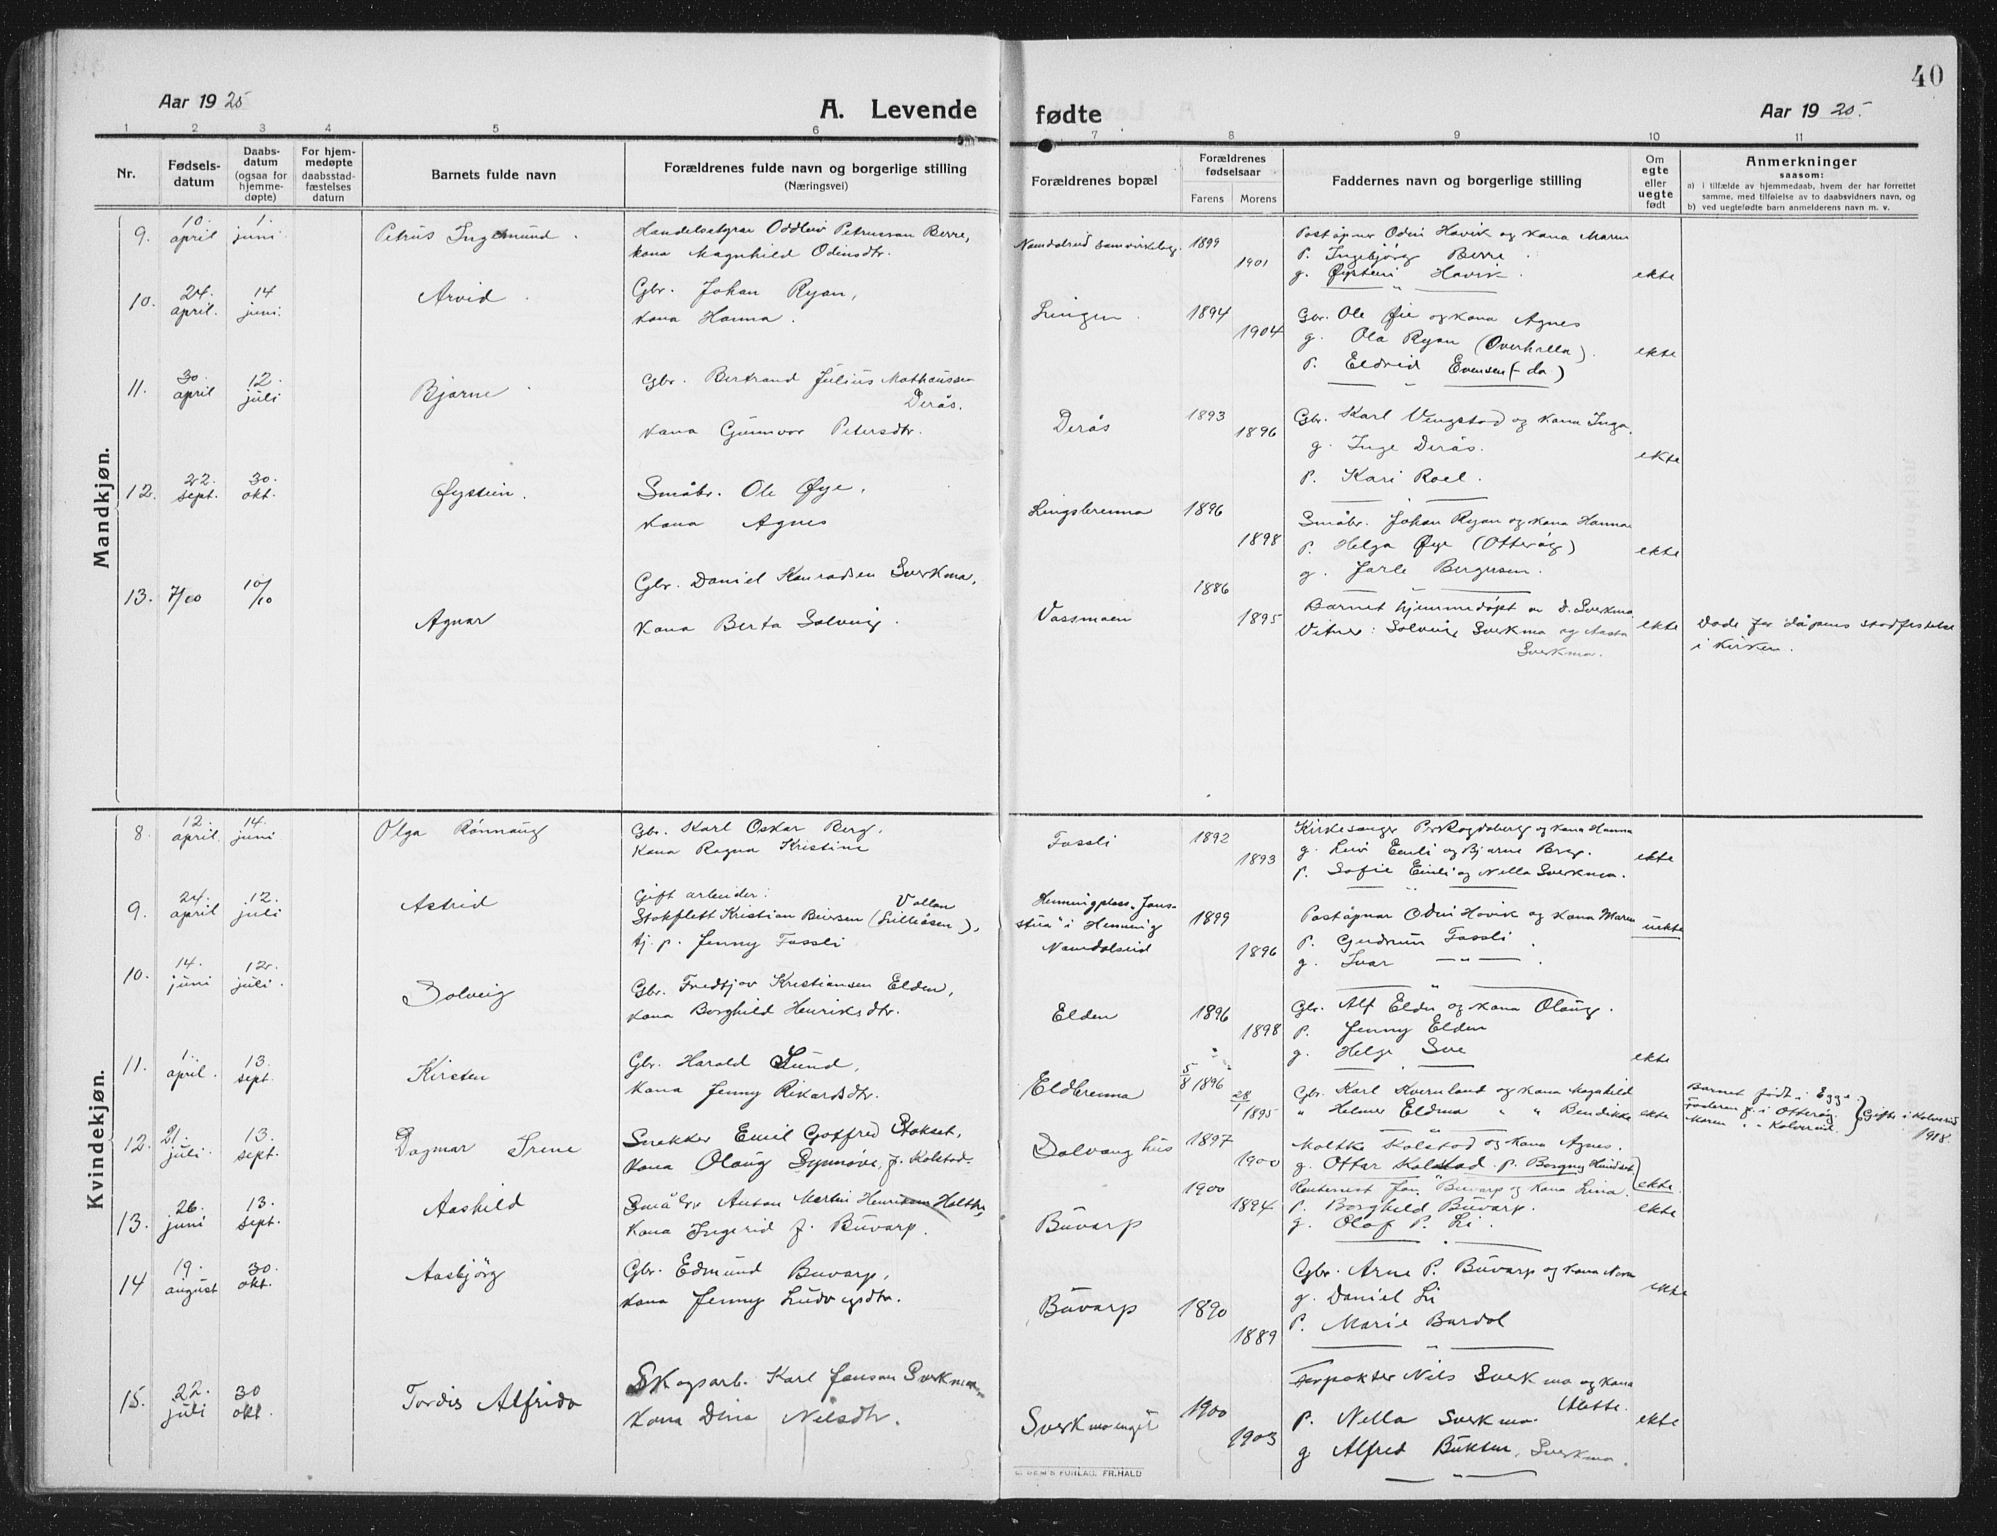 40
Aar 1925
A. Levende
fødte
Aar 1925.
1 2 3 4 5 6 7 8 9 10 11
Nr.
Fødsels-
datum
Daabs-
datum
(ogsaa for
hjemme-
døpte)
For hjem-
medøpte
daabsstad-
fæstelses
datum
Barnets fulde navn
Forældrenes fulde navn og borgerlige stilling
(Næringsvei)
Forældrenes bopæl
Forældrenes
fødselsaar
Farens Morens
Faddernes navn og borgerlige stilling
Om
egte
eller
uegte
født
Anmerkninger
saasom:
a) i tilfælde av hjemmedaab, hvem der har forrettet
samme, med tilføielse av to daabsvidners navn, og
b) ved uegtefødte barn anmelderens navn m. v.
Mandkjøn.
9. 10. april 1. juni Petrus Ingemund.
Handelsstyrer Oddleiv Petersen Berre,
kona Magnhild Odinsdtr.
Namdalseid samvirkelag. 1899 1901
Postopner Odin Havik og kona Maren
p. Ingebjørg Berre.
g. Øystein Havik.
ekte
10. 24. april. 14 juni. Arvid
Gbr. Johan Ryan,
kona Hanna.
Lingen. 1894 1904
Gbr. Ole Øie og kona Agnes
g. Ola Ryan (Overhalla).
p. Eldrid Evensen (- do)
ekte
11. 30 april 12. juli Bjarne
Gbr. Bertrand Julius Mathaussen
Derås.
kona Gunnvor Petersdtr.
Derås 1893 1896
Gbr. Karl Vengstad og kona Inga.
g. Inge Derås.
p. Kari Roel.
ekte
12. 22. sept. 30. okt. Øystein.
Småbr. Ole Øye,
kona Agnes
Lingsbrenna 1896 1898
Småbr. Johan Ryan og kona Hanna
p. Helga Øye (Otterøy)
g. Jarle Bergesen.
ekte
13. 7/10 10/10 Agnar
Gbr. Daniel Konradsen Sverkmo,
kona Berta Solveig.
Vassmoen 1886 1895
Barnet hjemmedøpt av D. Sverkmo
Vitner: Solveig Sverkmo og Aasta
Sverkmo.
ekte
Døde før dåpens stadfestelse
i kirken.
Kvindekjøn.
8. 12. april 14. juni Olga Rønnaug
Gbr. Karl Oskar Berg.
Kona Ragna Kristine
Fossli 1892 1893
Kirkesanger Per Rogdaberg og kona Hanna
g. Leiv Emli og Bjarne Berg.
p. Sofie Emli og Nella Sverkmo.
ekte
9. 24. april 12. juli Astrid
Gift arbeider:
Vollan
Stokflett Kristian Beirsen (Lilleåsen),
tj. p. Jenny Fossli
Henningplass "Jans-
stua" i Henning
Namdalseid
1899 1896
Postopnar Odin Hovik og kona Maren
p. Gudrun Fossli.
g. Ivar — " — .
uekte
10. 14. juni 12. juli. Solveig
Gbr. Fredtjov Kristiansen Elden,
kona Borghild Henriksdtr.
Elden 1896 1898
Gbr. Alf Elden og kona Olaug.
p. Jenny Elden
g. Helge Sve
ekte
11. 1. april. 13. sept. Kirsten
Gbr. Harald Lund,
kona Jenny Rikardsdtr.
Eldbrenna 5/8 1896 28/1 1895
Gbr. Karl Kvernland og kona Magnhild
" Helmer Eldmo " " Bendikke
ekte
Barnet født i Egge.
Faderen f. i Otterøy.
Moren " " Kolvereid.
Gifte i Kolvereid
1918.
12. 21. juli. 13. sept. Dagmar Irene
Snekker Emil Gotfred Stokset,
kona Olaug Synnøve, f. Kolstad.
Solvang hus 1897 1900
Moltke Kolstad og kona Agnes.
g. Ottar Kolstad. p. Borgny Hundset
ekte.
13. 26. juni 13. sept. Aashild
Småbr. Anton Martin Henriksen Holthe,
kona Ingerid f. Buvarp.
Buvarp 1900 1894
Rentenest Jon Buvarp og kona Lina.
p. Borghild Buvarp.
g. Olaf P. Li.
ekte
14 19. august 30. okt. Aasbjørg
Gbr. Edmund Buvarp,
kona Jenny Ludvigsdtr.
Buvarp 1890 1889
Gbr. Arne P. Buvarp og kona Nora
g. Daniel Li
p. Marie Bardol
ekte
15. 22. juli 30 okt. Tordis Alfrida
Skogsarb. Karl Jonson Sverkmo,
kona Dina Nilsdtr.
Sverkmoenget 1900 1903
Forpakter Nils Sverkmo og kona
Alette.
p. Nella Sverkmo.
g Alfred Buksen, Sverkmo.
ekte
FORLAG. FR. HALD